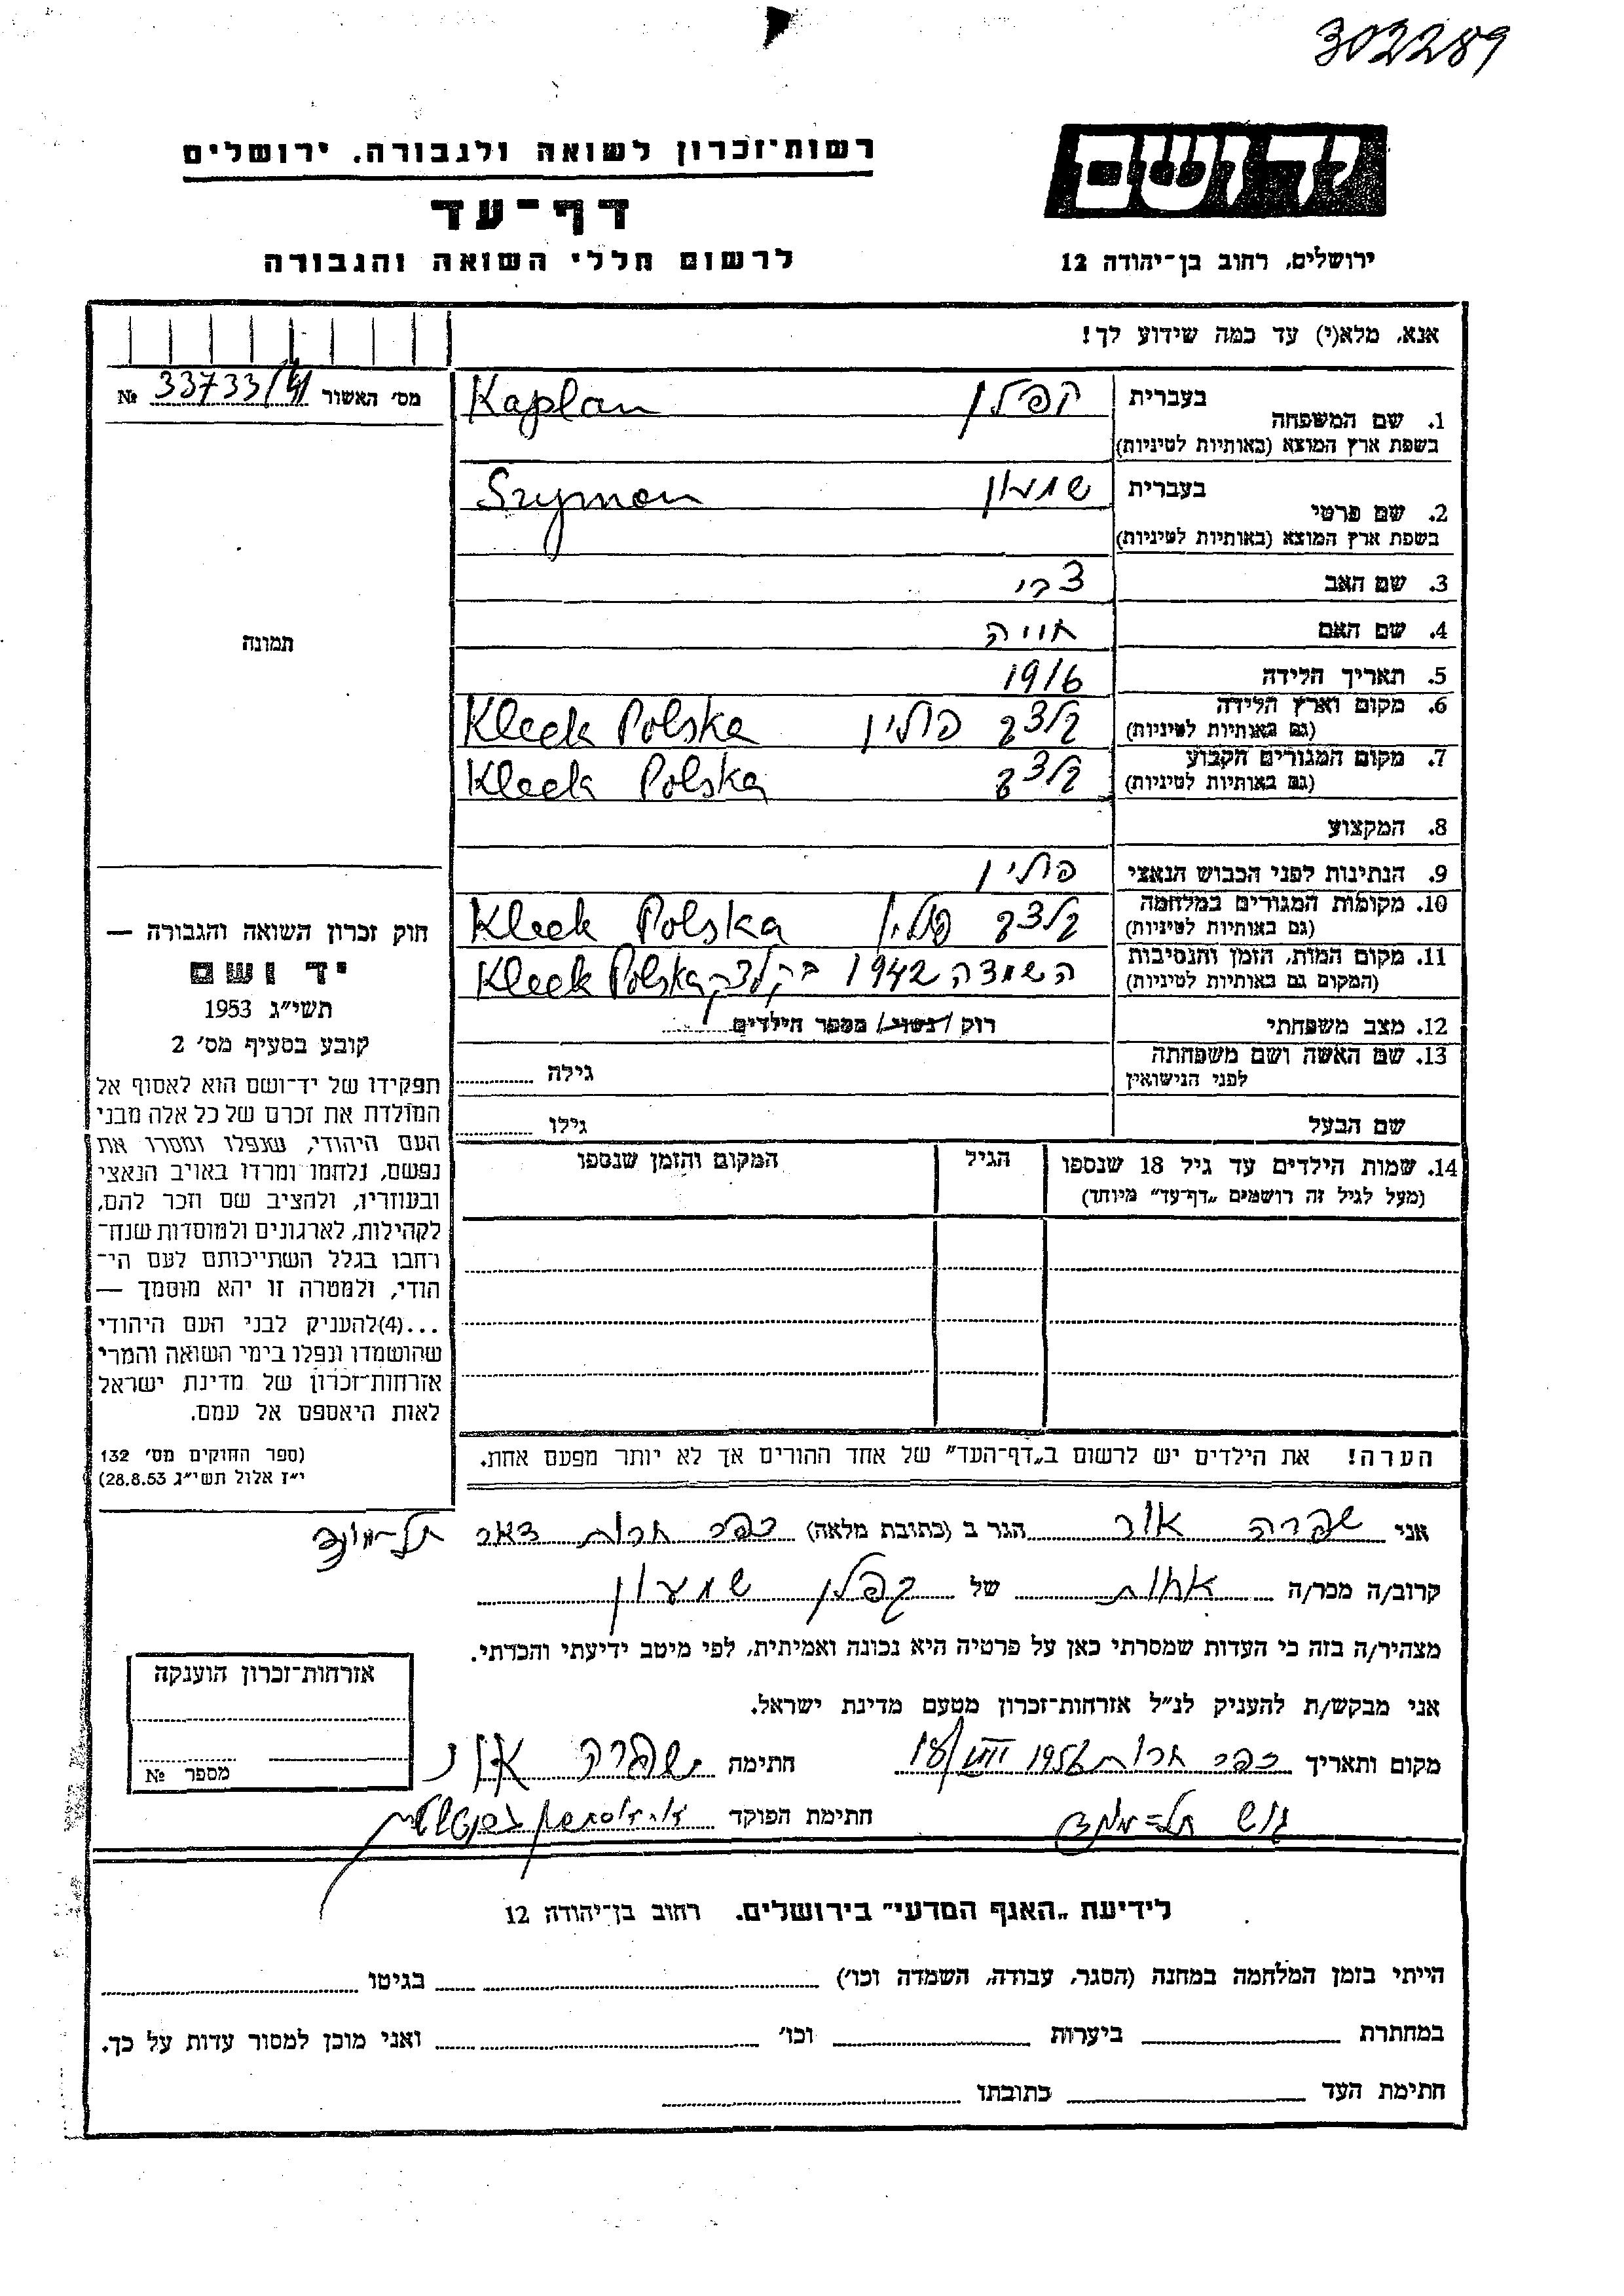 302289
רשות־זכרון לשואה ולגבורה. ירושלים
יד ושם
דף־עד
לרשום חללי השואה והגבורה
ירושלים, רחוב בן־יהודה 12
אנא, מלא(י) עד כמה שידוע לך!
מס׳ האשור 33733/41 №
1. שם המשפחה בעברית קפלן Kaplan
בשפת ארץ המוצא (באותיות לטיניות)
2. שם פרטי בעברית שמעון Szymon
בשפת ארץ המוצא (באותיות לטיניות)
3. שם האב צבי
4. שם האם חויה
תמונה
5. תאריך הלידה 1916
6. מקום וארץ הלידה קלצק פולין Kleck Polska
(גם באותיות לטיניות)
7. מקום המגורים הקבוע קלצק Kleck Polska
(גם באותיות לטיניות)
8. המקצוע
9. הנתינות לפני הכבוש הנאצי פולין
10. מקומות המגורים במלחמה קלצק פולין Kleck Polska
(גם באותיות לטיניות)
11. מקום המות, הזמן והנסיבות השמדה 1942 בקלצק Kleck Polska
(המקום גם באותיות לטיניות)
12. מצב משפחתי רוק / נשוי / מספר הילדים
13. שם האשה ושם משפחתה גילה
לפני הנישואין
שם הבעל גילו
14. שמות הילדים עד גיל 18 שנספו הגיל המקום והזמן שנספו
(מעל לגיל זה רושמים „דף־עד״ מיוחד)
חוק זכרון השואה והגבורה —
יד ושם
תשי״ג 1953
קובע בסעיף מס׳ 2
תפקידו של יד־ושם הוא לאסוף אל
המולדת את זכרם של כל אלה מבני
העם היהודי, שנפלו ומסרו את
נפשם, נלחמו ומרדו באויב הנאצי
ובעוזריו, ולהציב שם וזכר להם,
לקהילות, לארגונים ולמוסדות שנח־
רחבו בגלל השתייכותם לעם הי־
הודי, ולמטרה זו יהא מוסמך —
...(4)להעניק לבני העם היהודי
שהושמדו ונפלו בימי השואה והמרי
אזרחות־זכרון של מדינת ישראל
לאות היאספם אל עמם.
(ספר החוקים מס׳ 132
י״ז אלול תשי״ג 28.8.53)
הערה! את הילדים יש לרשום ב„דף־העד״ של אחד ההורים אך לא יותר מפעם אחת.
אני שפרה אור הגר ב (כתובת מלאה) כפר חרות דאר תל-מונד
קרוב/ה מכר/ה אחות של קפלן שמעון
מצהיר/ה בזה כי העדות שמסרתי כאן על פרטיה היא נכונה ואמיתית, לפי מיטב ידיעתי והכרתי.
אני מבקש/ת להעניק לנ״ל אזרחות־זכרון מטעם מדינת ישראל.
מקום ותאריך כפר חרות 1956 VIII/18 חתימה שפרה אור
גוש תל-מונד חתימת הפוקד
אזרחות־זכרון הוענקה
מספר №
לידיעת „האגף המדעי״ בירושלים. רחוב בן־יהודה 12
הייתי בזמן המלחמה במחנה (הסגר, עבודה, השמדה וכו׳) בגיטו
במחתרת ביערות וכו׳ ואני מוכן למסור עדות על כך.
חתימת העד כתובתו